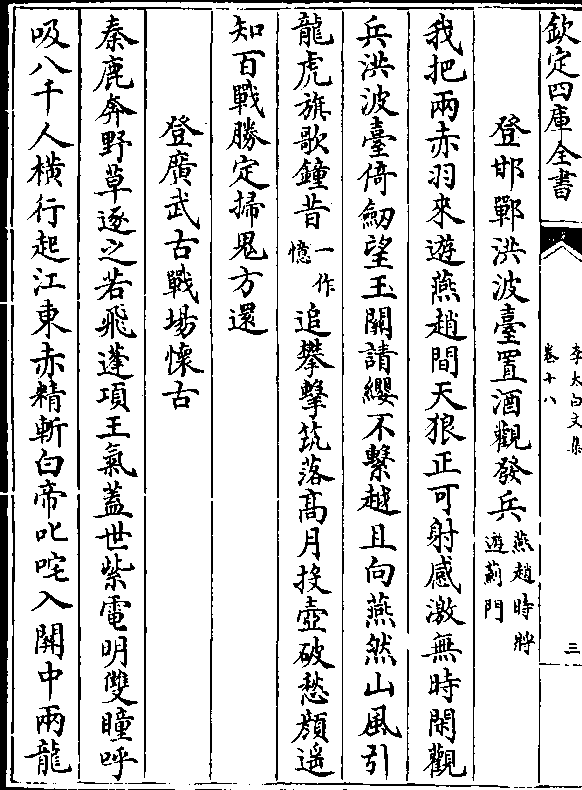 欽定四庫全書
李太白文集
卷十八
三
登邯鄲洪波臺置酒觀發兵燕趙時將遊薊門
我把兩赤羽來遊燕趙間天狼正可射感激無時閑觀
兵洪波臺倚劒望玉關請纓不繫越且向燕然山風引
龍虎旗歌鐘昔一作憶追攀擊筑落高月投壺破愁顏遥
知百戰勝定掃鬼方還
登廣武古戰場懷古
秦鹿奔野草逐之若飛蓬項王氣蓋世紫電明雙瞳呼
吸八千人橫行起江東赤精斬白帝叱咤入關中兩龍